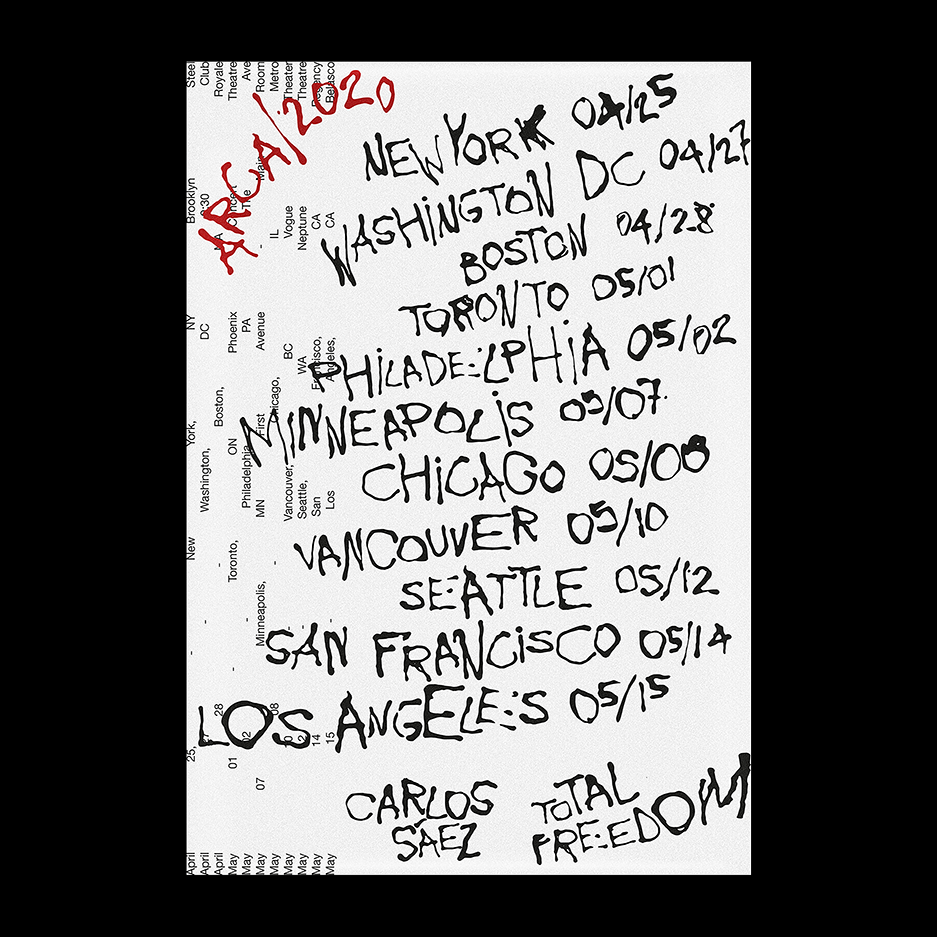 ARCA/2020
NEW YORK 04/25
WASHINGTON DC 04/27
BOSTON 04/28
TORONTO 05/01
PHILADELPHIA 05/02
MINNEAPOLIS 05/07
CHICAGO 05/08
VANCOUVER 05/10
SEATTLE 05/12
SAN FRANCISCO 05/14
LOS ANGELES 05/15
CARLOS
SÁEZ
TOTAL
FREEDOM
April 25, - New York, NY Brooklyn Steel
April 27 - Washington, DC 9:30 Club
April 28 - Boston, MA Royale
May 01 - Toronto, ON Phoenix Concert Theatre
May 02 - Philadelphia, PA The Ave
May 07 - Minneapolis, MN First Avenue - Main Room
May 08 - Chicago, IL Metro
May 10 - Vancouver, BC Vogue Theater
May 12 - Seattle, WA Neptune Theatre
May 14 - San Francisco, CA Regency
May 15 - Los Angeles, CA Belasco